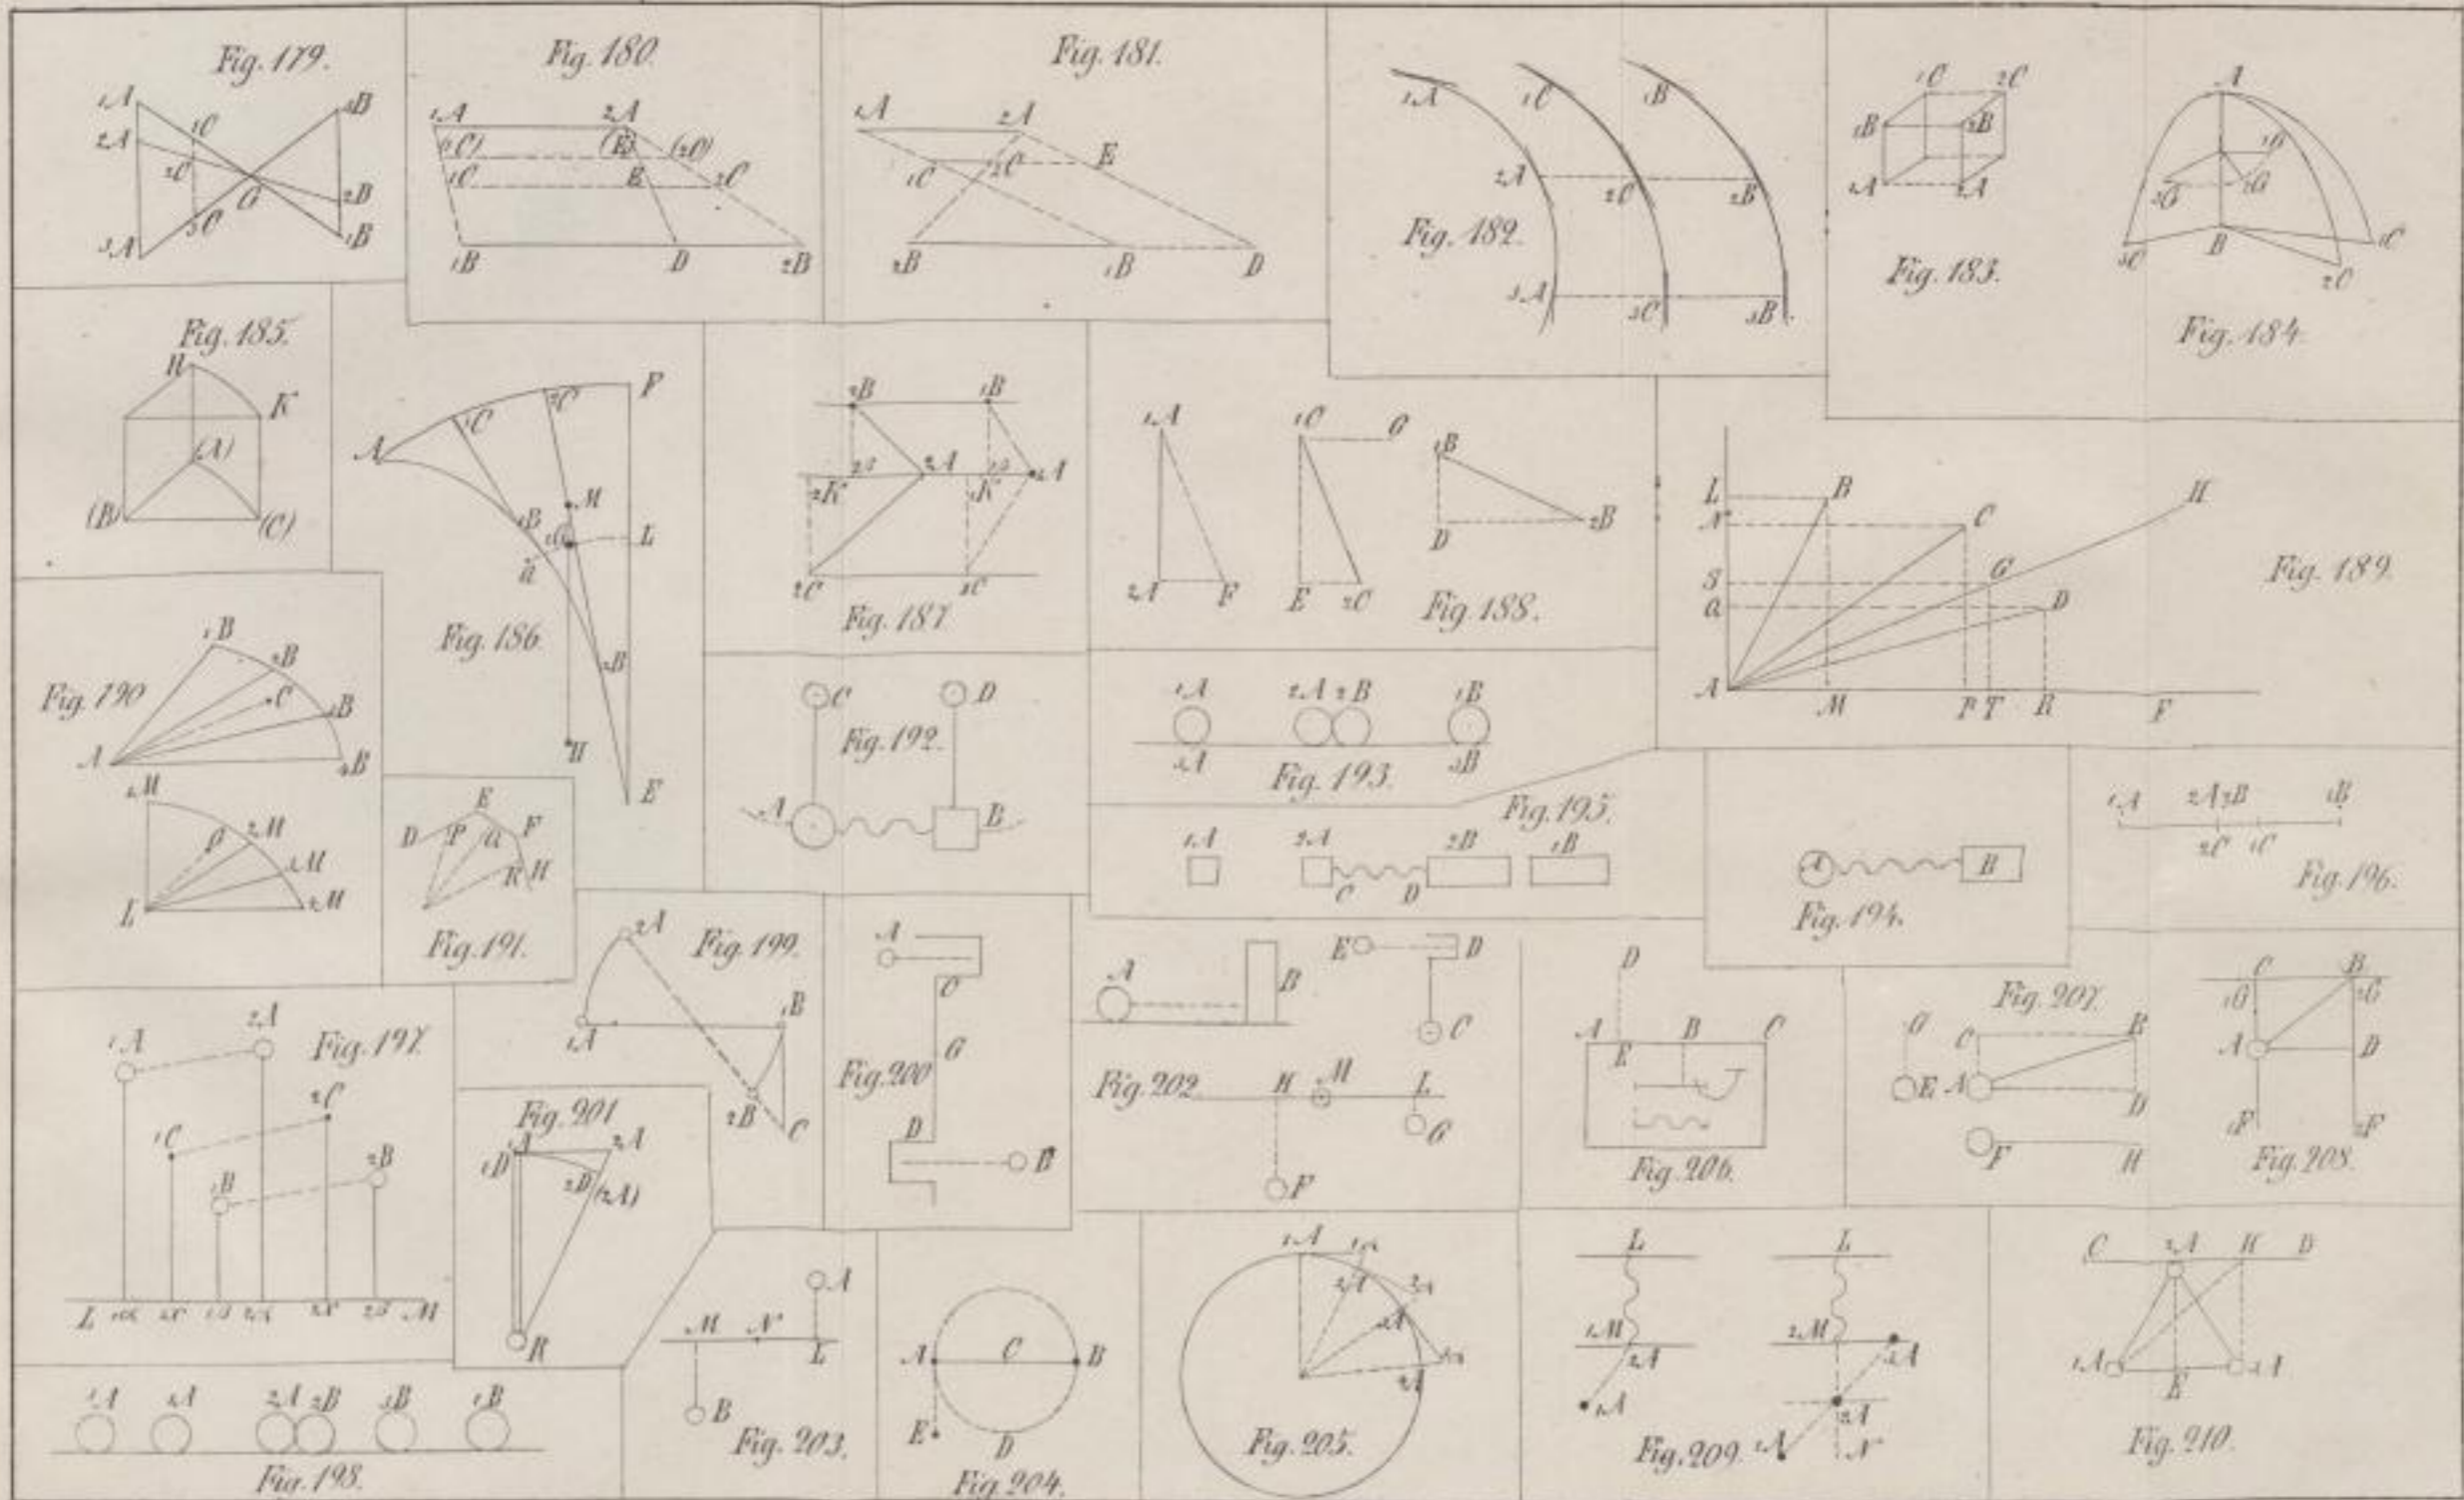 Fig. 179.
1A
2A
3A
1C
2C
3C
G
3B
2B
1B
Fig. 180.
1A
2A
(1C)
(E)
(2C)
1C
E
2C
1B
D
2B
Fig. 181.
1A
2A
1C
2C
E
2B
1B
D
Fig. 182.
1A
1C
1B
2A
2C
2B
3A
3C
3B
Fig. 183.
1C
2C
1B
2B
1A
2A
Fig. 184.
A
1G
3G
2G
3C
B
2C
1C
Fig. 185.
H
K
(A)
(B)
(C)
Fig. 186.
A
1C
2C
F
M
1B
G
L
a
2B
H
E
Fig. 187.
2B
1B
2β
2A
1β
1A
2K
1K
2C
1C
Fig. 188.
1A
1C
G
1B
2A
F
E
2C
D
2B
Fig. 189.
L
B
N
C
H
S
G
Q
D
A
M
P
T
R
F
Fig. 190.
1B
2B
C
3B
A
4B
1M
2M
3M
L
2M
Fig. 191.
E
D
P
Q
F
R
H
Fig. 192.
C
D
A
B
Fig. 193.
1A
2A
2B
1B
3A
3B
Fig. 194.
A
B
Fig. 195.
1A
2A
2B
1B
C
D
Fig. 196.
1A
2A
2B
1B
2C
1C
Fig. 197.
1A
2A
1C
2C
1B
2B
L
M
Fig. 198.
1A
3A
2A
2B
3B
1B
Fig. 199.
2A
1B
1A
2B
C
Fig. 200
A
C
G
D
B
Fig. 201
1A
2A
1D
2D
(2A)
R
Fig. 202.
A
B
E
D
C
H
M
L
G
F
Fig. 203.
A
M
N
L
B
Fig. 204.
A
C
B
E
D
Fig. 205.
1A
2A
3A
2A
Fig. 206.
D
A
B
C
E
Fig. 207.
G
C
B
E
A
D
F
H
Fig. 208.
C
B
1G
2G
A
D
1F
2F
Fig. 209.
L
L
1M
2M
2A
3A
1A
2A
1A
N
Fig. 210.
C
2A
H
D
1A
3A
E